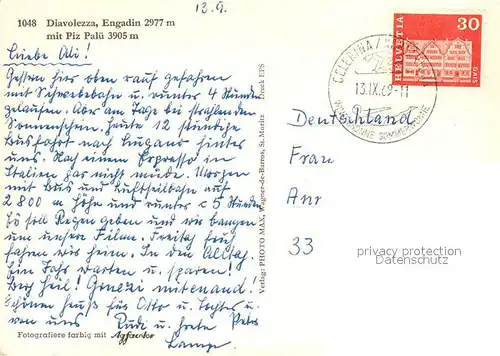 13.9.
1048 Diavolezza, Engadin 2977 m
mit Piz Palü 3905 m
Liebe Adi!
Gestern hier oben rauf gefahren
mit Schwebebahn u. runter 4 Stunden
gelaufen. Aber am Tage bei strahlendem
Sonnenschein. Heute 12 stündige
Busfahrt nach Lugano hinter
uns. Nach einem Expresso in
Italien gar nicht müde. Morgen
mit Bus und Luftseilbahn auf
2800 m Höhe und runter c 5 Stunden
Es soll Regen geben und wir bangen
um unsere Filme. Freitag früh
fahren wir heim. In den Alltag.
Ein Jahr warten u. sparen!
Berg heil! mitenand.
Schönen Gruß für Otto u.
von uns Rudi u. Grete
Fotografiere farbig mit Agfacolor
Verlag: PHOTO MAX, Wagner-de-Barros, St. Moritz Druck EPS
CELERINA/
13.IX.69-11
SOMMERFERIE
HELVETIA
30
GAIS
Deutschland
Frau
Anr
33
privacy protection
Datenschutz